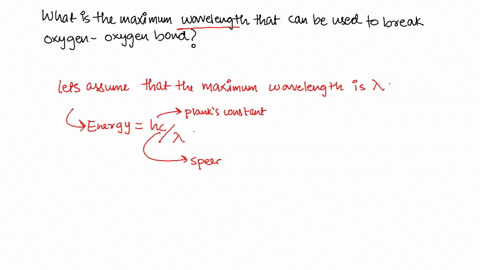 What is the maximum wavelength that can be used to break
oxygen- oxygen bond?
lets assume that the maximum wavelength is λ.
plank's constant
Energy = hc/λ.
speer